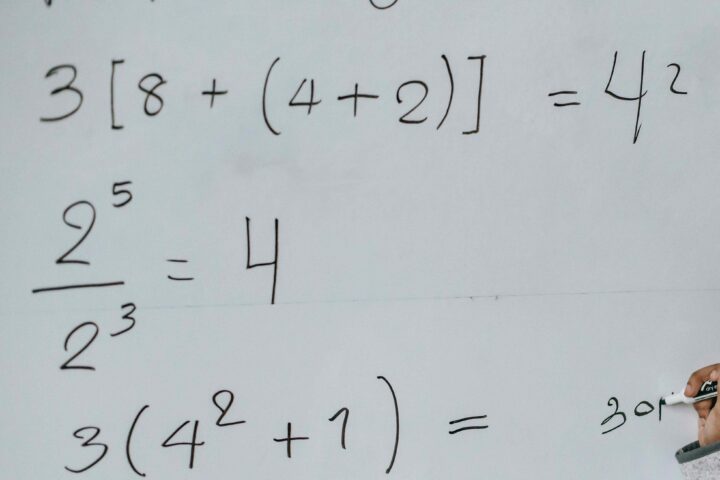 3[8 + (4+2)] = 42
2⁵/2³ = 4
3(4² + 1) =